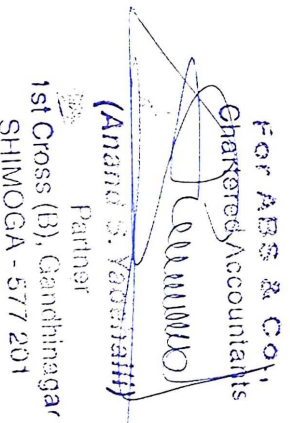 For ABS & CO.,
Chartered Accountants
(Anand S.
Partner
1st Cross (B), Gandhinagar
SHIMOGA - 577 201